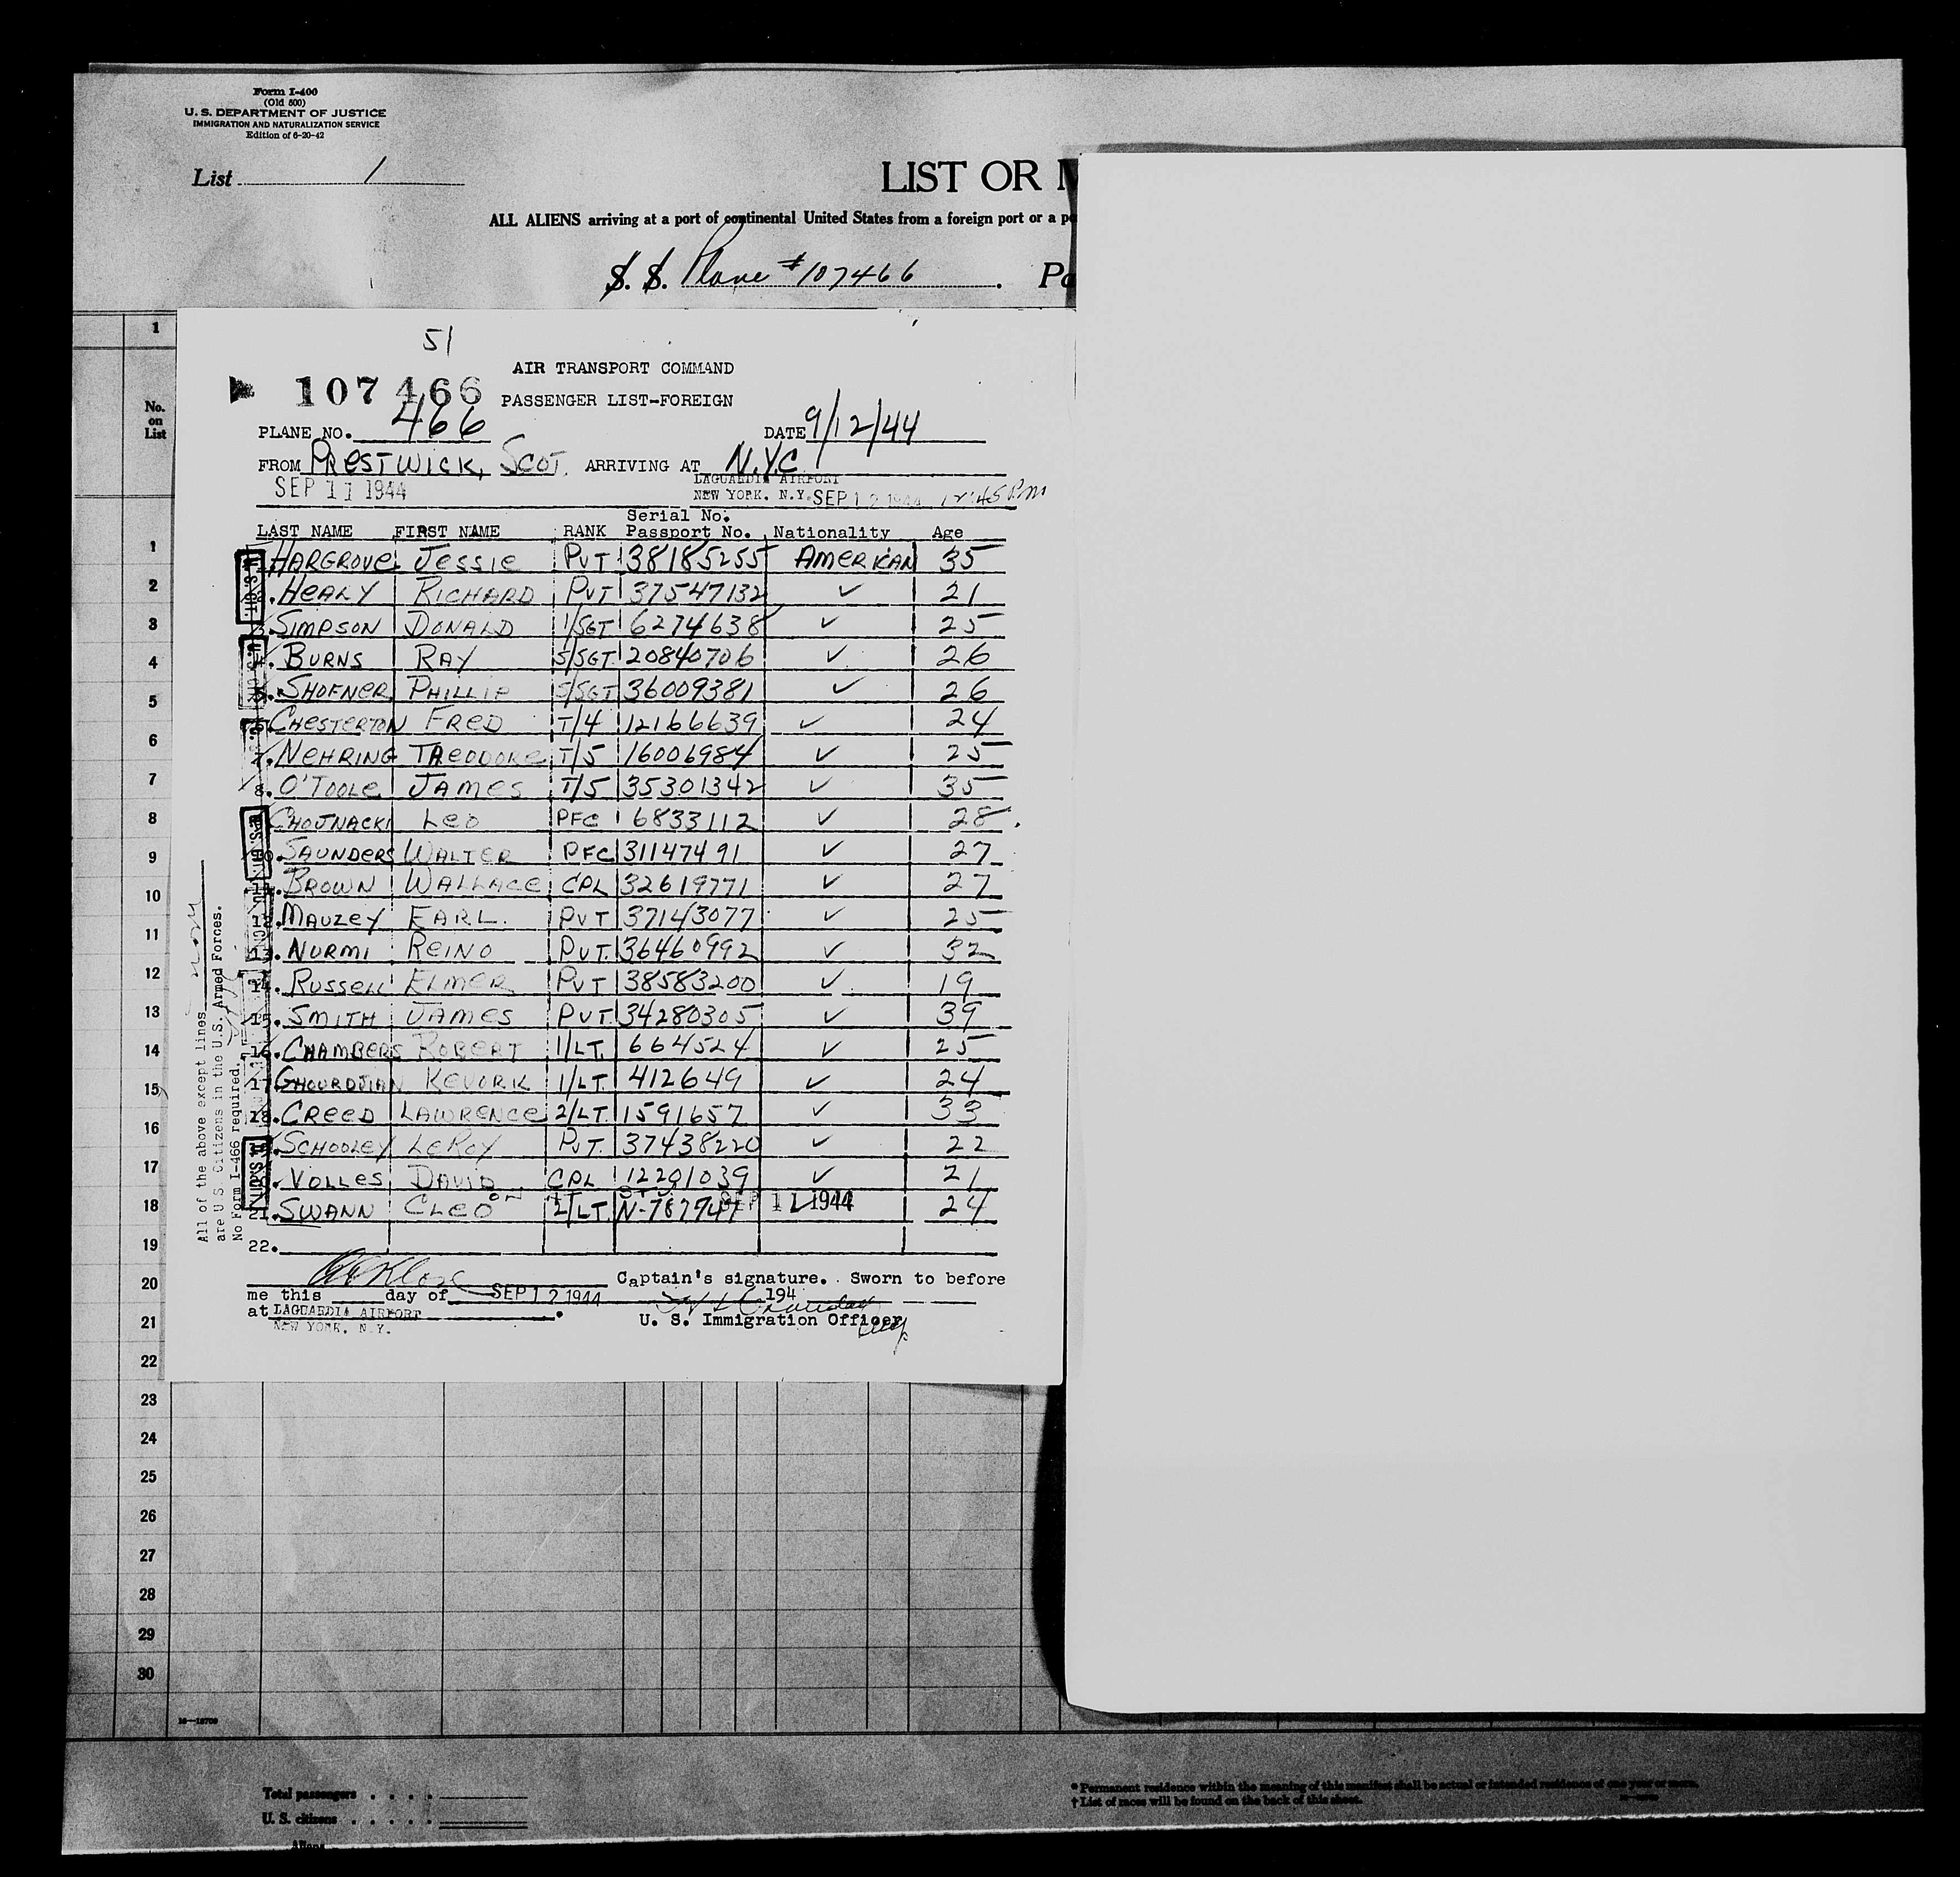 Form I-400
(Old 500)
U. S. DEPARTMENT OF JUSTICE
IMMIGRATION AND NATURALIZATION SERVICE
Edition of 6-20-42
List 1
LIST OR M
ALL ALIENS arriving at a port of continental United States from a foreign port or a po
S. S. Plane #107466. Pa
1
No.
on
List
51
AIR TRANSPORT COMMAND
107466
PASSENGER LIST-FOREIGN
PLANE NO. 466 DATE 9/12/44
FROM PRESTWICK, SCOT. ARRIVING AT N.Y.C
SEP 11 1944 LAGUARDIA AIRPORT
NEW YORK. N.Y. SEP 12 1944 12:45 P.m
LAST NAME FIRST NAME RANK Serial No. Passport No. Nationality Age
HARGROVE JESSIE PVT 38185255 AMERICAN 35
HEALY RICHARD PVT 37547132 ✓ 21
SIMPSON DONALD 1/SGT 6274638 ✓ 25
4. BURNS RAY S/SGT. 20840706 ✓ 26
5. SHOFNER PHILLIP S/SGT 36009381 ✓ 26
6. CHESTERTON FRED T/4 12166639 ✓ 24
7. NEHRING THEODORE T/5 16006984 ✓ 25
8. O'TOOLE JAMES T/5 35301342 ✓ 35
CHOJNACKI LEO PFC 6833112 ✓ 28.
10. SAUNDERS WALTER PFC 31147491 ✓ 27
11. BROWN WALLACE CPL 32619771 ✓ 27
12. MAUZEY EARL. PVT 37143077 ✓ 25
13. NURMI REINO PVT. 36460992 ✓ 32
14. RUSSELL ELMER PVT 38583200 ✓ 19
15. SMITH JAMES PVT 34280305 ✓ 39
16. CHAMBERS ROBERT 1/LT. 664524 ✓ 25
17. GHOURDJIAN KEVORK 1/LT. 412649 ✓ 24
18. CREED LAWRENCE 2/LT. 1591657 ✓ 33
SCHOOLEY LEROY PVT. 37438220 ✓ 22
VOLLES DAVID CPL 12201039 ✓ 21
21. SWANN CLEO ON 2/LT. N-787947 SEP 11 1944 ✓ 24
22.
Captain's signature. Sworn to before
me this day of SEP 12 1944 194
at LAGUARDIA AIRPORT.
NEW YORK. N.Y.
U. S. Immigration Officer
All of the above except lines
are U.S. Citizens in the U.S. Armed Forces.
No Form I-466 required.
1
2
3
4
5
6
7
8
9
10
11
12
13
14
15
16
17
18
19
20
21
22
23
24
25
26
27
28
29
30
Total passengers . . . .
U. S. citizens . . . . .
Aliens
* Permanent residence within the meaning of this manifest shall be actual or intended residence of one year or more.
† List of races will be found on the back of this sheet.